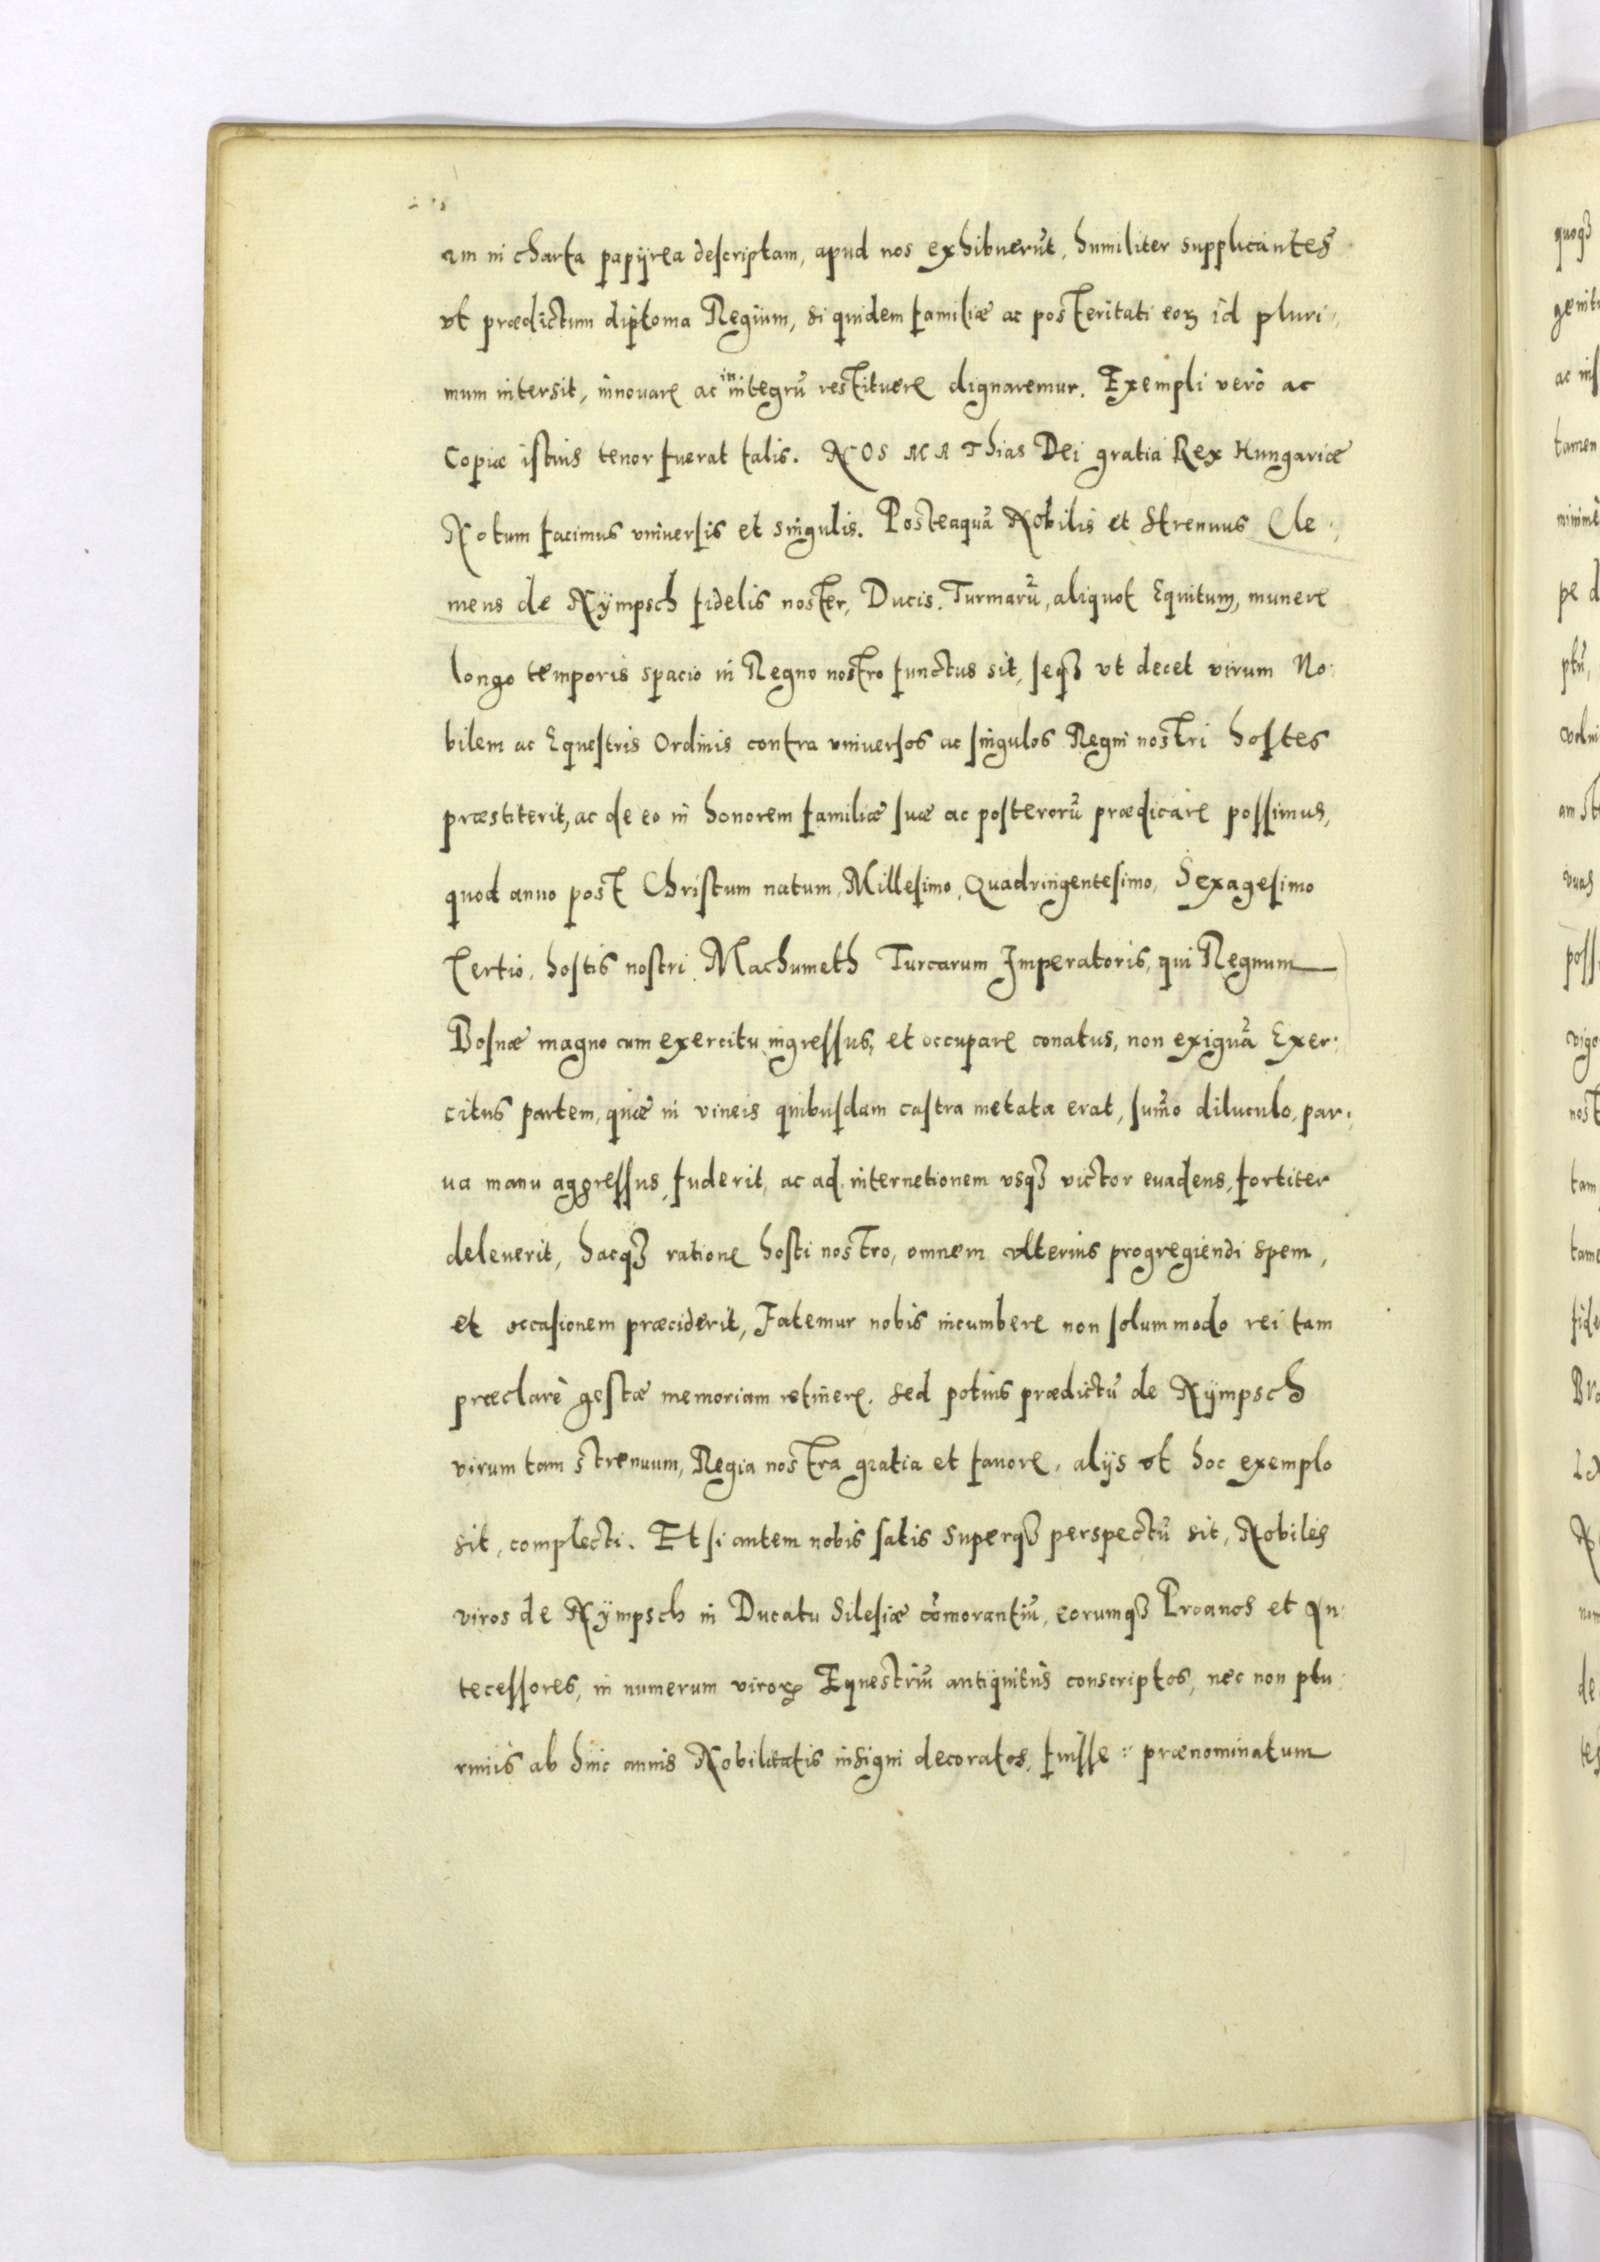 am in charta papÿrea descriptam, apud nos exhibuerūt, humiliter supplicantes
vt prædictum diploma Regium, si quidem familiæ ac posteritati eoꝝ id pluri-
mum intersit, innouare ac in integrū restituere dignaremur. Exempli verò ac
Copiæ istius tenor fuerat talis. NOS MAThias Dei gratia Rex Hungariæ
Notum facimus vniuersis et singulis. Posteaquā Nobilis et Strenuus Cle-
mens de Nÿmpsch fidelis noster, Ducis, Turmarū, aliquot Equitum, munere
longo temporis spacio in Regno nostro functus sit, seqꝫ vt decet virum No-
bilem ac Equestris Ordinis contra vniuersos ac singulos Regni nostri hostes
præstiterit, ac de eo in honorem familiæ suæ ac posterorū prædicare possimus,
quod anno post Christum natum, Millesimo, Quadringentesimo, Sexagesimo
Tertio, hostis nostri Machumeth Turcarum Imperatoris, qui Regnum
Bosnæ magno cum exercitu ingressus, et occupare conatus, non exiguā Exer-
citus partem, quæ in vineis quibusdam castra metata erat, sum̄o diluculo, par-
ua manu aggressus, fuderit, ac ad internetionem vsqꝫ victor euadens, fortiter
deleuerit, hacqꝫ ratione hosti nostro, omnem vlterius progregiendi spem,
et occasionem præciderit, Fatemur nobis incumbere non solummodo rei tam
præclarè gestæ memoriam retinere. sed potius prædictū de Nÿmpsch
virum tam strenuum, Regia nostra gratia et fauore, alijs vt hoc exemplo
sit, complecti. Et si autem nobis satis superqꝫ perspectū sit, Nobiles
viros de Nÿmpsch in Ducatu Silesiæ cōmorantiū, eorumqꝫ Proauos et An-
tecessores, in numerum viroꝝ Equestriū antiquitùs conscriptos, nec non plu-
rimis ab hinc annis Nobilitatis insigni decoratos, fuisse : prænominatum